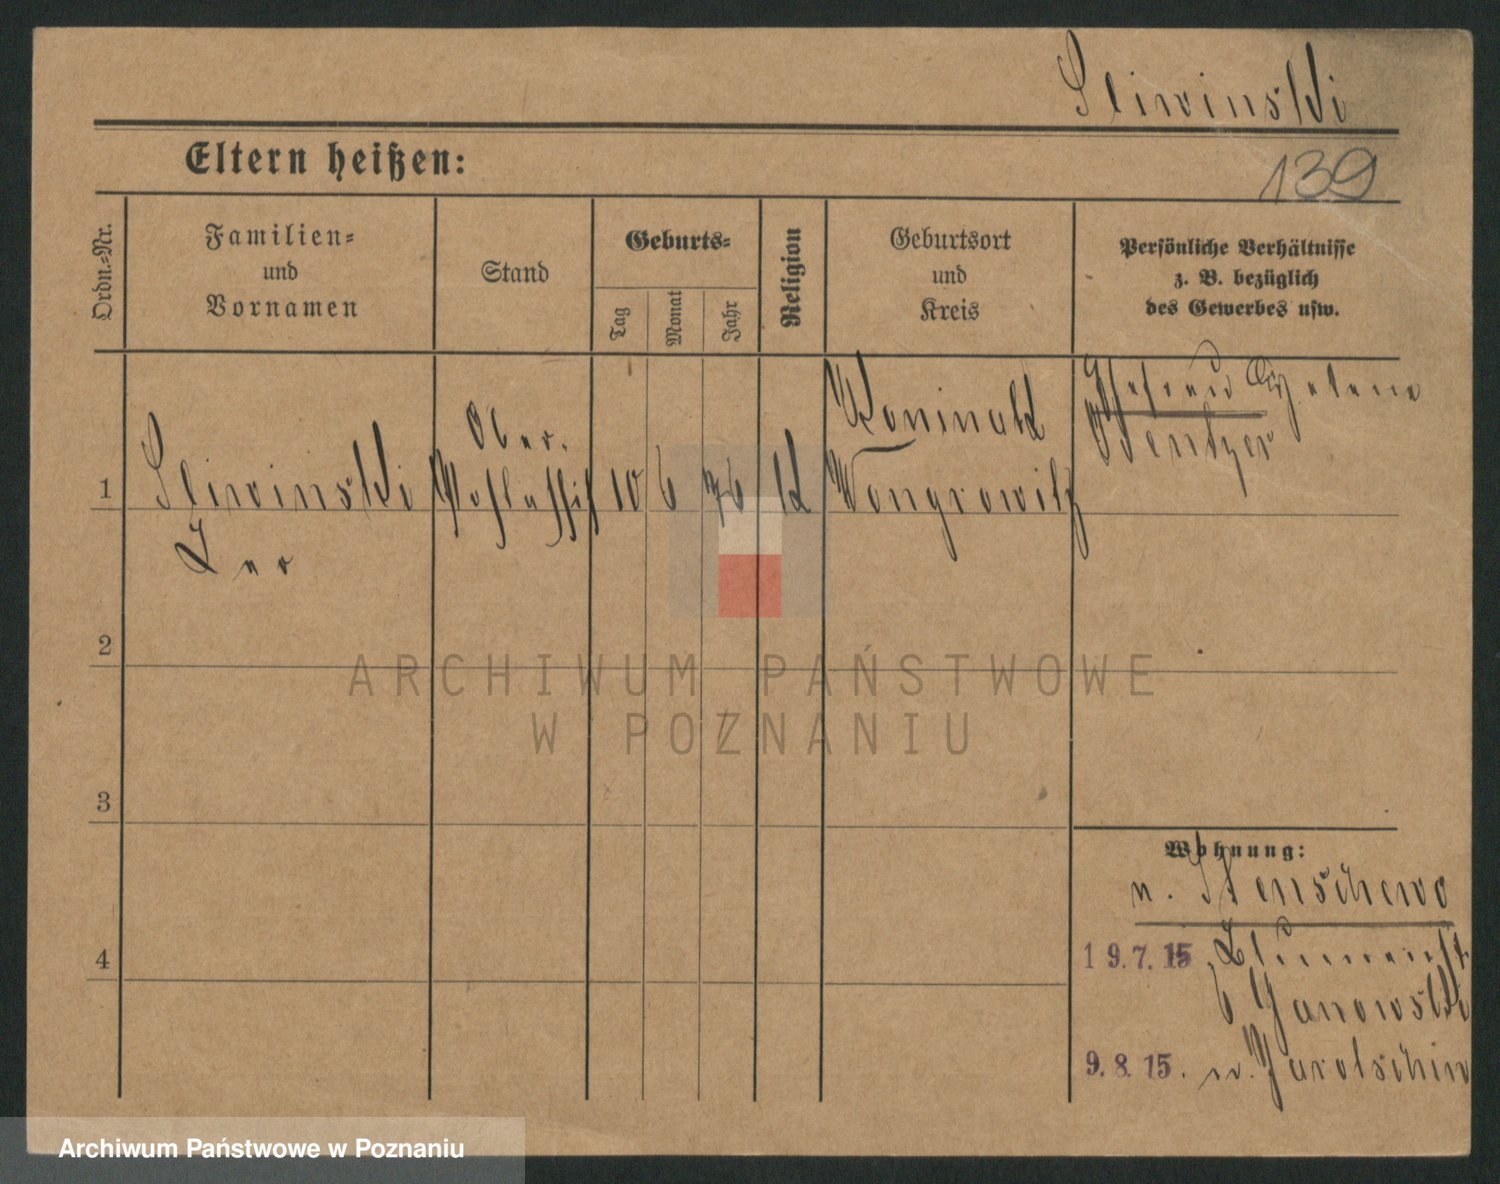 Sliwinski
Eltern heißen:
139
Ordn.-Nr.
Familien-
und
Vornamen
Stand
Geburts-
Tag
Monat
Jahr
Religion
Geburtsort
und
Kreis
Persönliche Verhältnisse
z. B. bezüglich
des Gewerbes usw.
1
Sliwinski
Leo
Ober-
10
6
76
K
Wongrowitz
Ehefrau Helene
Wentzer
2
3
4
Wohnung:
n. Stenschewo
19.7.15
b Janowski
9.8.15. n. Jarotschin
ARCHIWUM PAŃSTWOWE
W POZNANIU
Archiwum Państwowe w Poznaniu